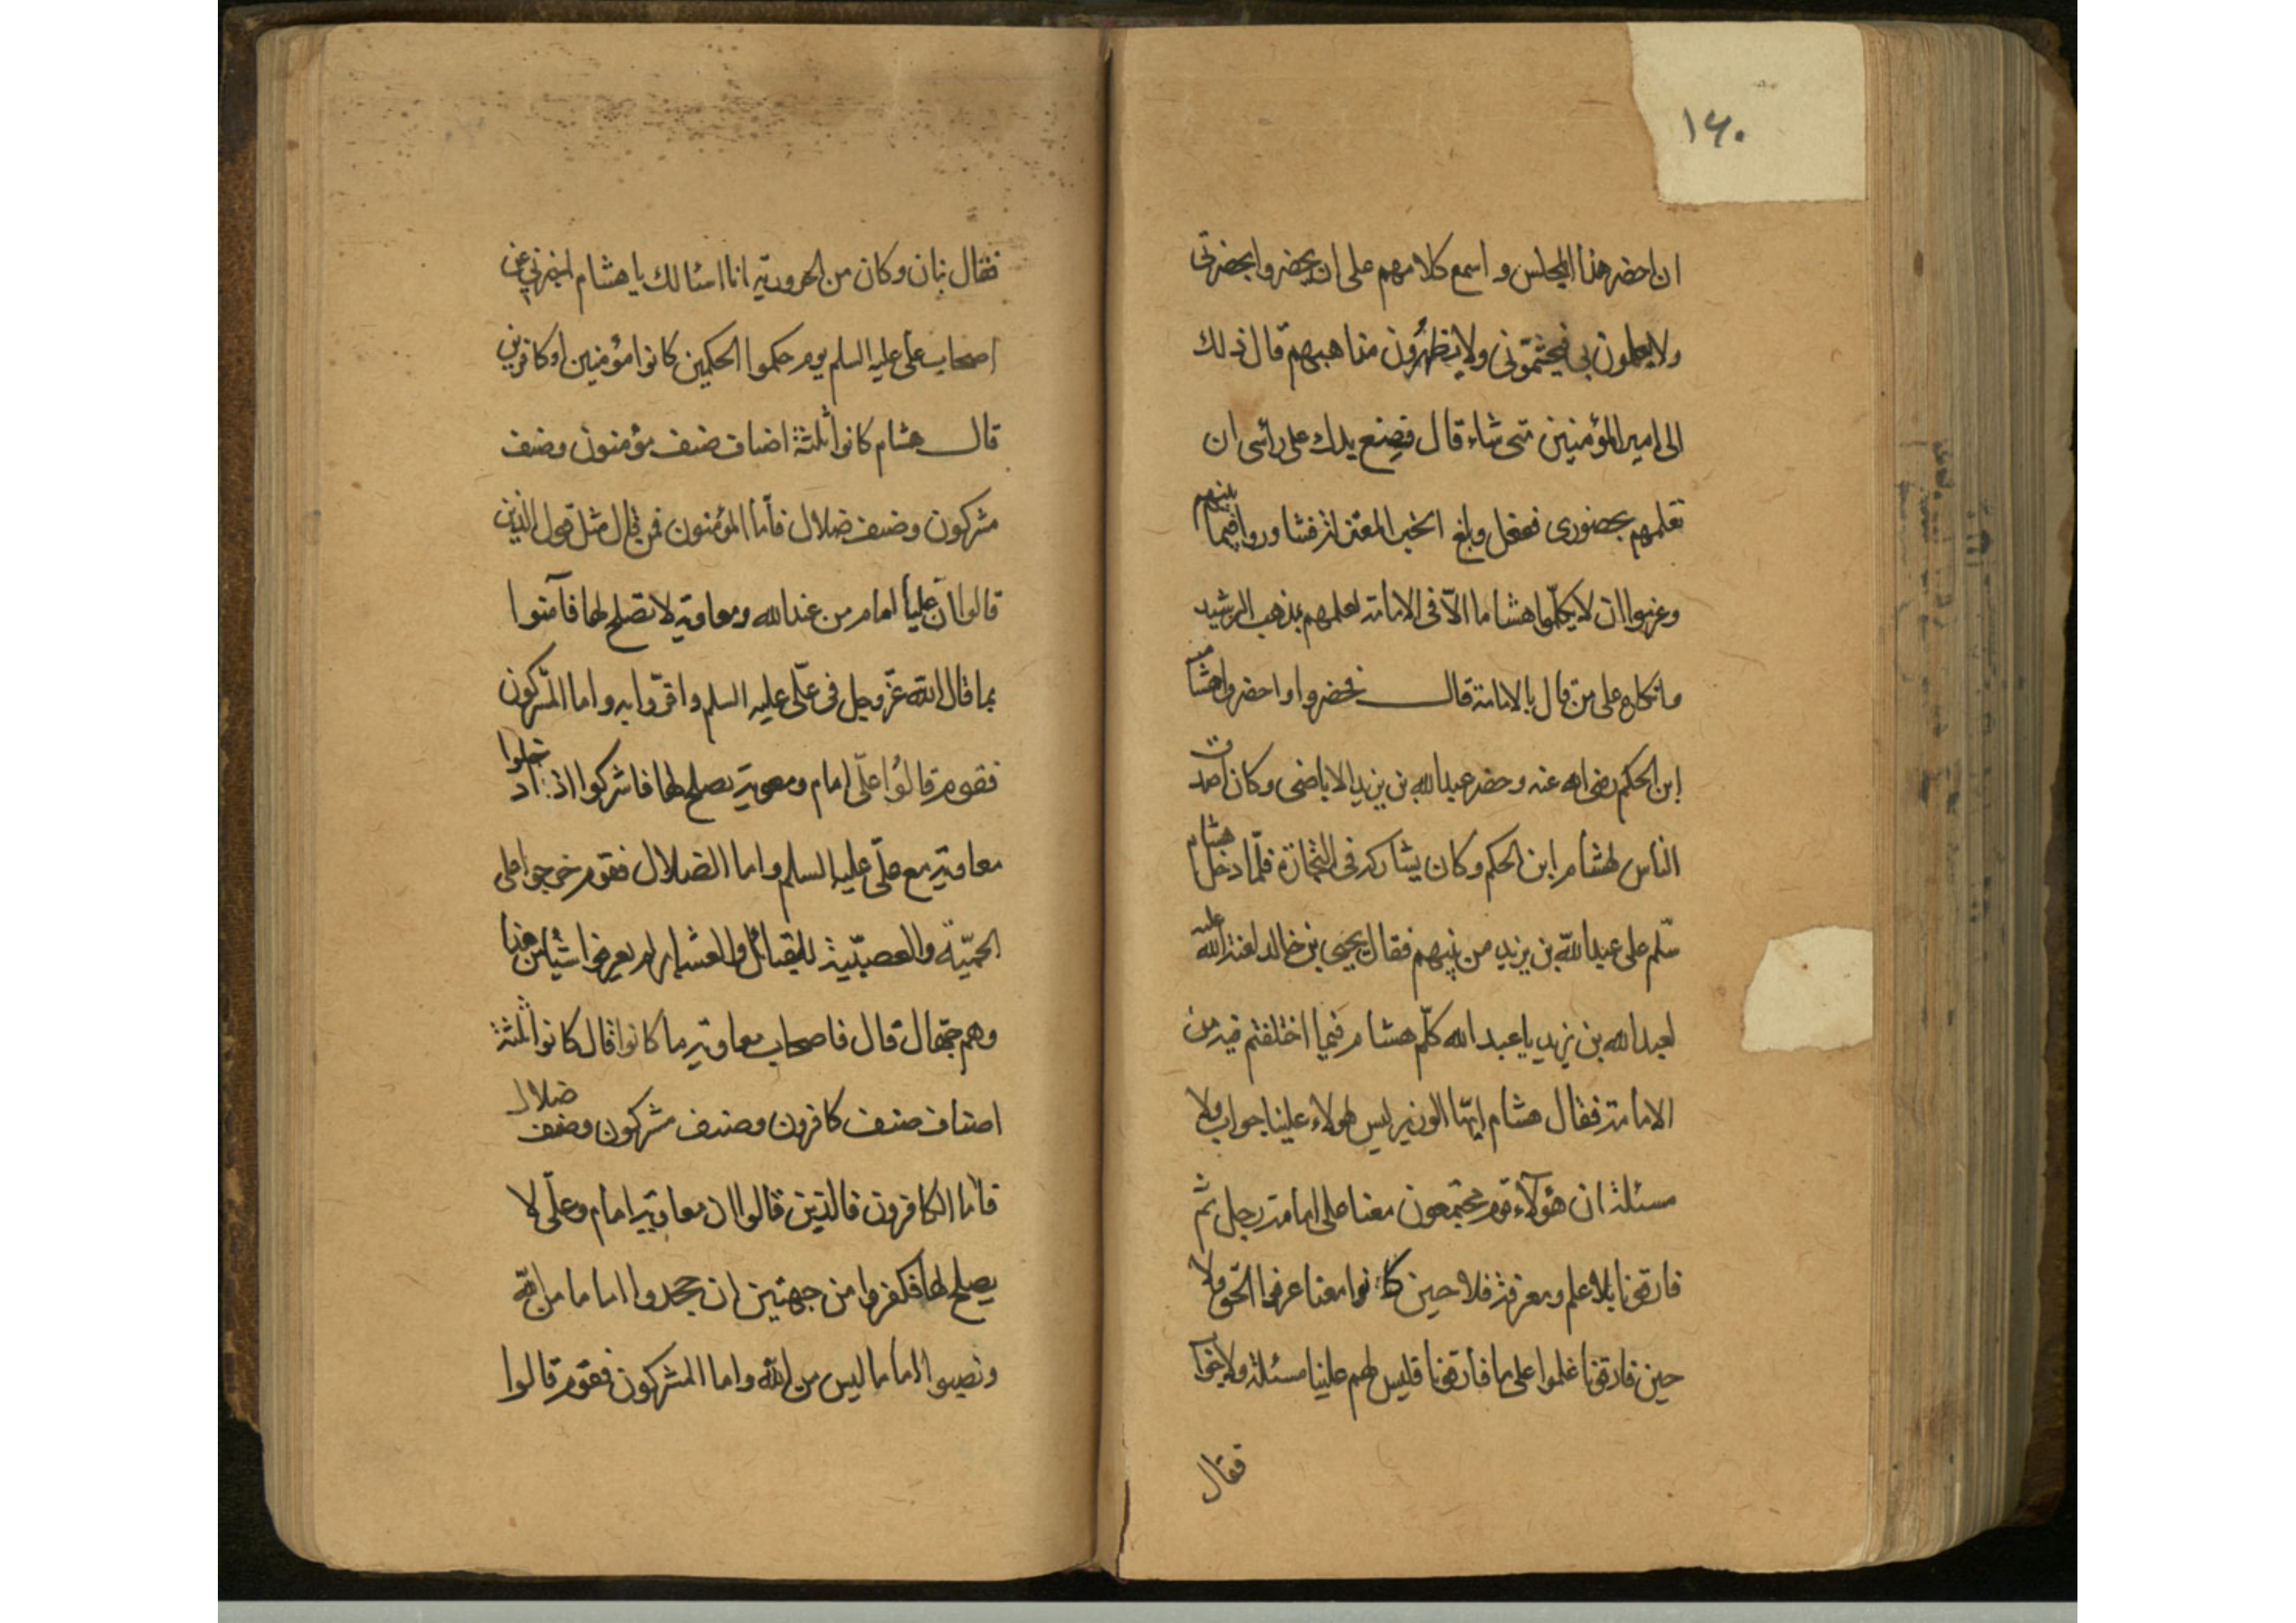 ١٤٠
ان احضر هذا المجلس و اسمع كلامهم على ان يحضروا بحضرتى
ولا يعلمون بى فيحتشمونى ولا يظهرون مذاهبهم قال ذلك
الى امير المؤمنين متى شاء قال فضع يدك على رأسى ان
تعلمهم بحضورى ففعل وبلغ الخبر المعتزلة فتشاوروا فيما بينهم
وعزموا ان لا يكلموا هشاما الّا فى الامامة لعلمهم بمذهب الرشيد
وانكاره على من قال بالامامة قال فحضروا واحضروا هشام
ابن الحكم رضى الله عنه وحضر عبدالله بن يزيد الاباضى وكان اصدق
الناس لهشام ابن الحكم وكان يشاركه فى التجارة فلمّا دخل هشام
سلّم على عبدالله بن يزيد من بينهم فقال يحيى بن خالد لعنة الله عليه
لعبدالله بن يزيد يا عبد الله كلّم هشام فيما اختلفتم فيه من
الامامة فقال هشام ايها الوزير ليس لهولاء علينا جواب ولا
مسئلة ان هؤلاء قوم مجتمعون معنا على امامة رجل ثم
فارقونا بلا علم ومعرفة فلا حين كانوا معنا عرفوا الحق ولا
حين فارقونا علموا على ما فارقونا فليس لهم علينا مسئلة ولا جواب
فقال
فقال بنان وكان من الحرورية انا اسئالك يا هشام اخبرنى عن
اصحاب على عليه السلم يوم حكموا الحكمين كانوا مؤمنين او كافرين
قال هشام كانوا ثلثة اصناف صنف مؤمنون وصنف
مشركون وصنف ضلال فأما المؤمنون فمن قال مثل قول الذين
قالوا ان علياً امام من عندالله ومعاوية لا تصلح لها فآمنوا
بما قال الله عزّ وجل فى علّى عليه السلم واقرّوا به واما المشركون
فقوم قالوا علّى امام ومعوية يصلح لها فاشركوا اذ ادخلوا
معاوية مع علّى عليه السلم واما الضلال فقوم خرجوا على
الحميّة والعصبيّة للقبائل والعشاير لم يعرفوا شيئا من هذا
وهم جهّال قال فاصحاب معاوية ما كانوا قال كانوا ثلثة
اصناف صنف كافرون وصنف مشركون وصنف ضلال
فأما الكافرون فالذين قالوا ان معاوية امام وعلّى لا
يصلح لها فكفروا من جهتين ان جحدوا اماما من الله
ونصبوا اماما ليس من الله واما المشركون فقوم قالوا